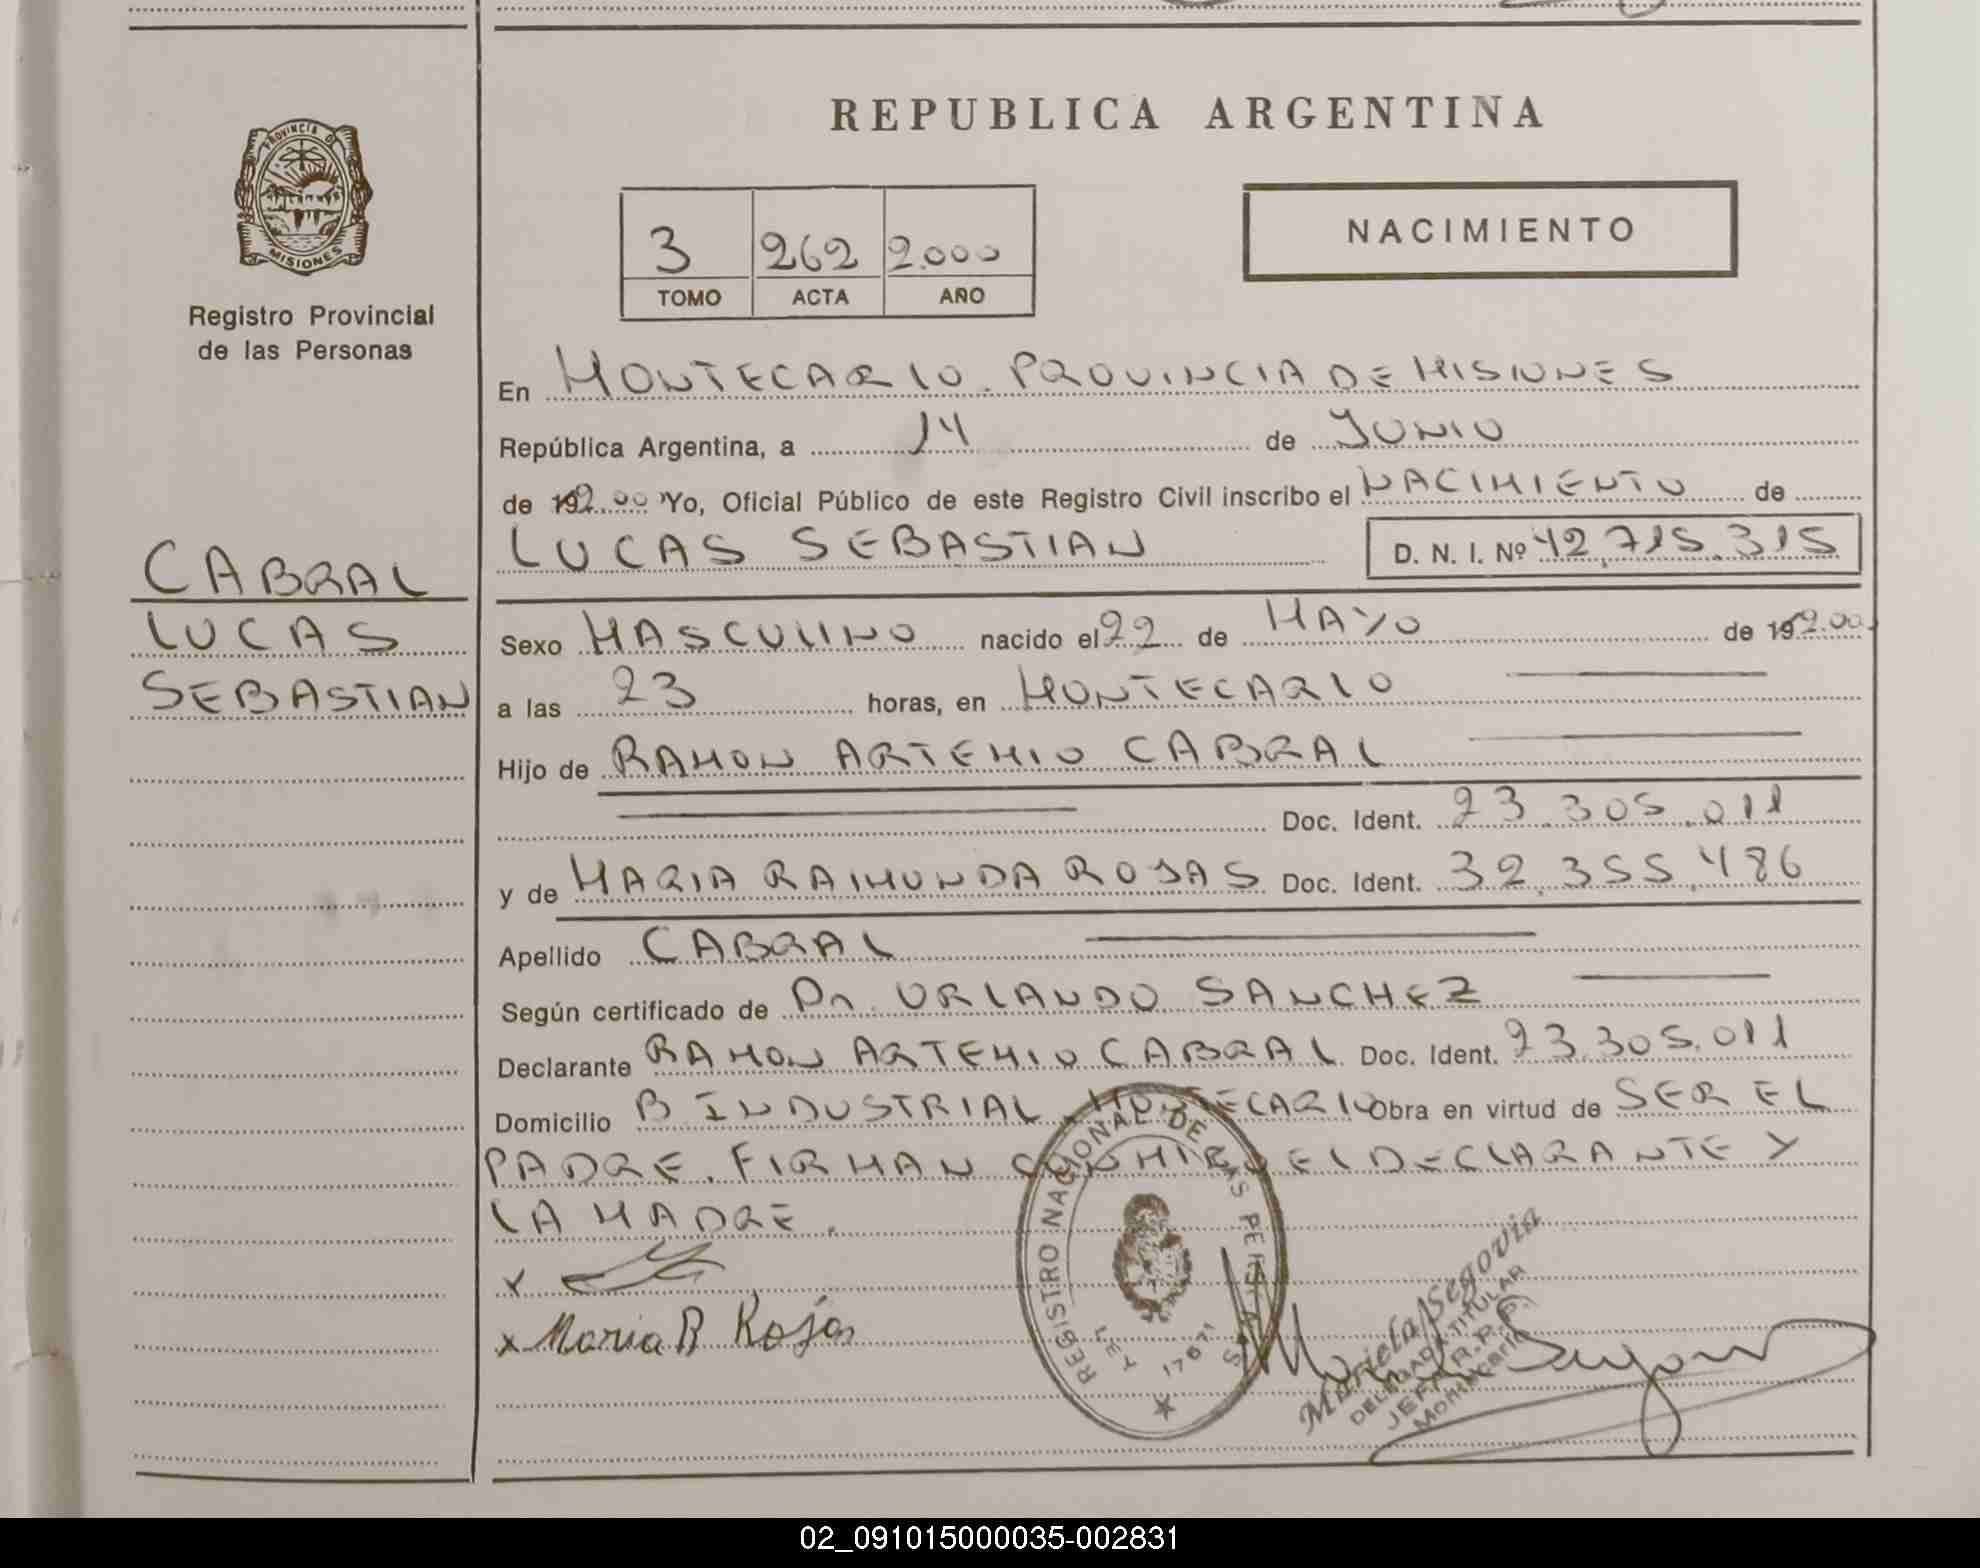 REPUBLICA ARGENTINA
PROVINCIA DE
MISIONES
Registro Provincial
de las Personas
3 262 2.000
TOMO ACTA AÑO
NACIMIENTO
En MONTECARLO. PROVINCIA DE MISIONES
República Argentina, a 14 de JUNIO
de 192.00 Yo, Oficial Público de este Registro Civil inscribo el NACIMIENTO de
LUCAS SEBASTIAN D. N. I. Nº 42.715.315
CABRAL
LUCAS
SEBASTIAN
Sexo MASCULINO nacido el 22 de MAYO de 192.00
a las 23 horas, en MONTECARLO
Hijo de RAMON ARTEMIO CABRAL
Doc. Ident. 23.305.011
y de MARIA RAIMUNDA ROJAS Doc. Ident. 32.355.486
Apellido CABRAL
Según certificado de Dr. ORLANDO SANCHEZ
Declarante RAMON ARTEMIO CABRAL Doc. Ident. 23.305.011
Domicilio B INDUSTRIAL, MONTECARLO Obra en virtud de SER EL
PADRE. FIRMAN CONMIGO EL DECLARANTE Y
LA MADRE.
x
x Maria R Rojas
REGISTRO NACIONAL DE LAS PERSONAS
LEY 17671
Mariela Segovia
DELEGADA TITULAR
JEFA R.P.P.
Montecarlo
02_091015000035-002831